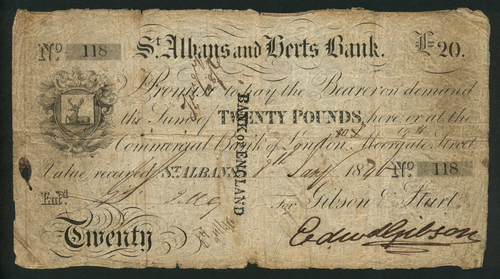 No 118 St Albans and Herts Bank. £20.
I Promise to pay the Bearer on demand
the Sum of TWENTY POUNDS, here or at the
Commercial Bank of London, Moorgate Street
Value received ST ALBANS Jany No 118
BANK OF ENGLAND
Entd For Gibson & Sturt
Twenty Edwd Gibson